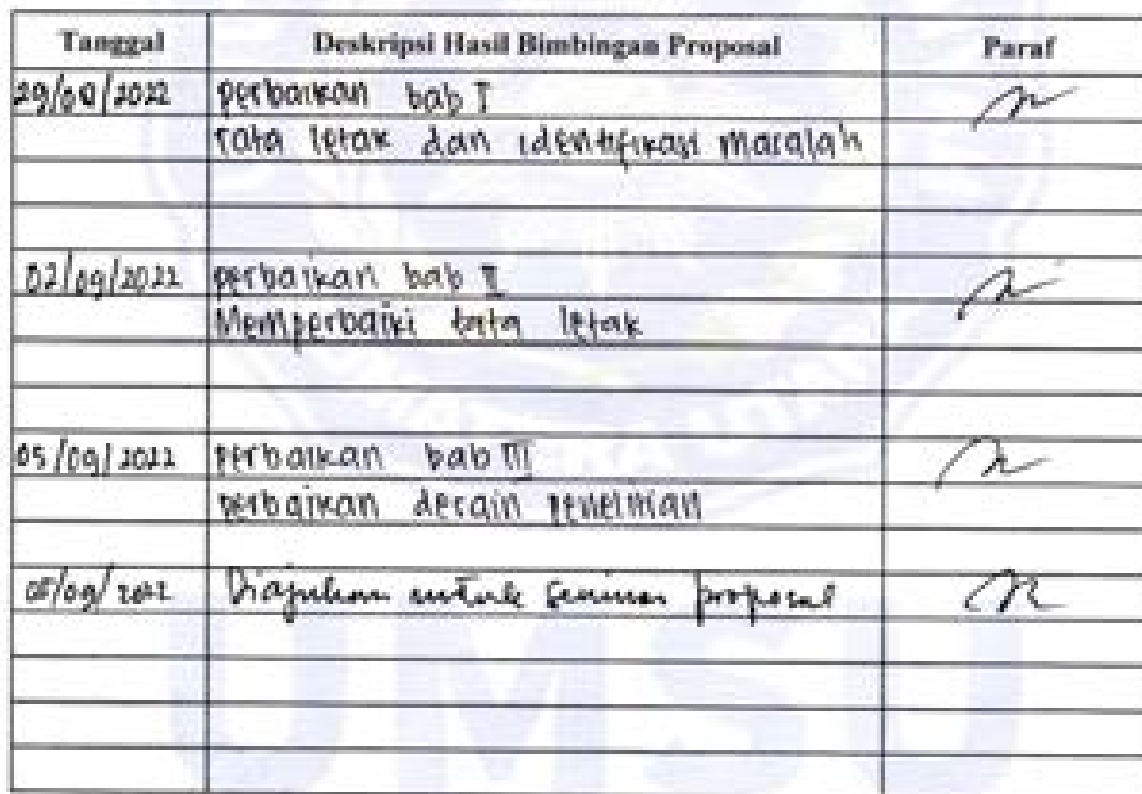 Tanggal Deskripsi Hasil Bimbingan Proposal Paraf
29/08/2022 perbaikan bab I
tata letak dan identifikasi masalah
02/09/2022 perbaikan bab II
Memperbaiki tata letak
05/09/2022 perbaikan bab III
perbaikan desain penelitian
/09/2022 Diajukan untuk seminar proposal
UMSU